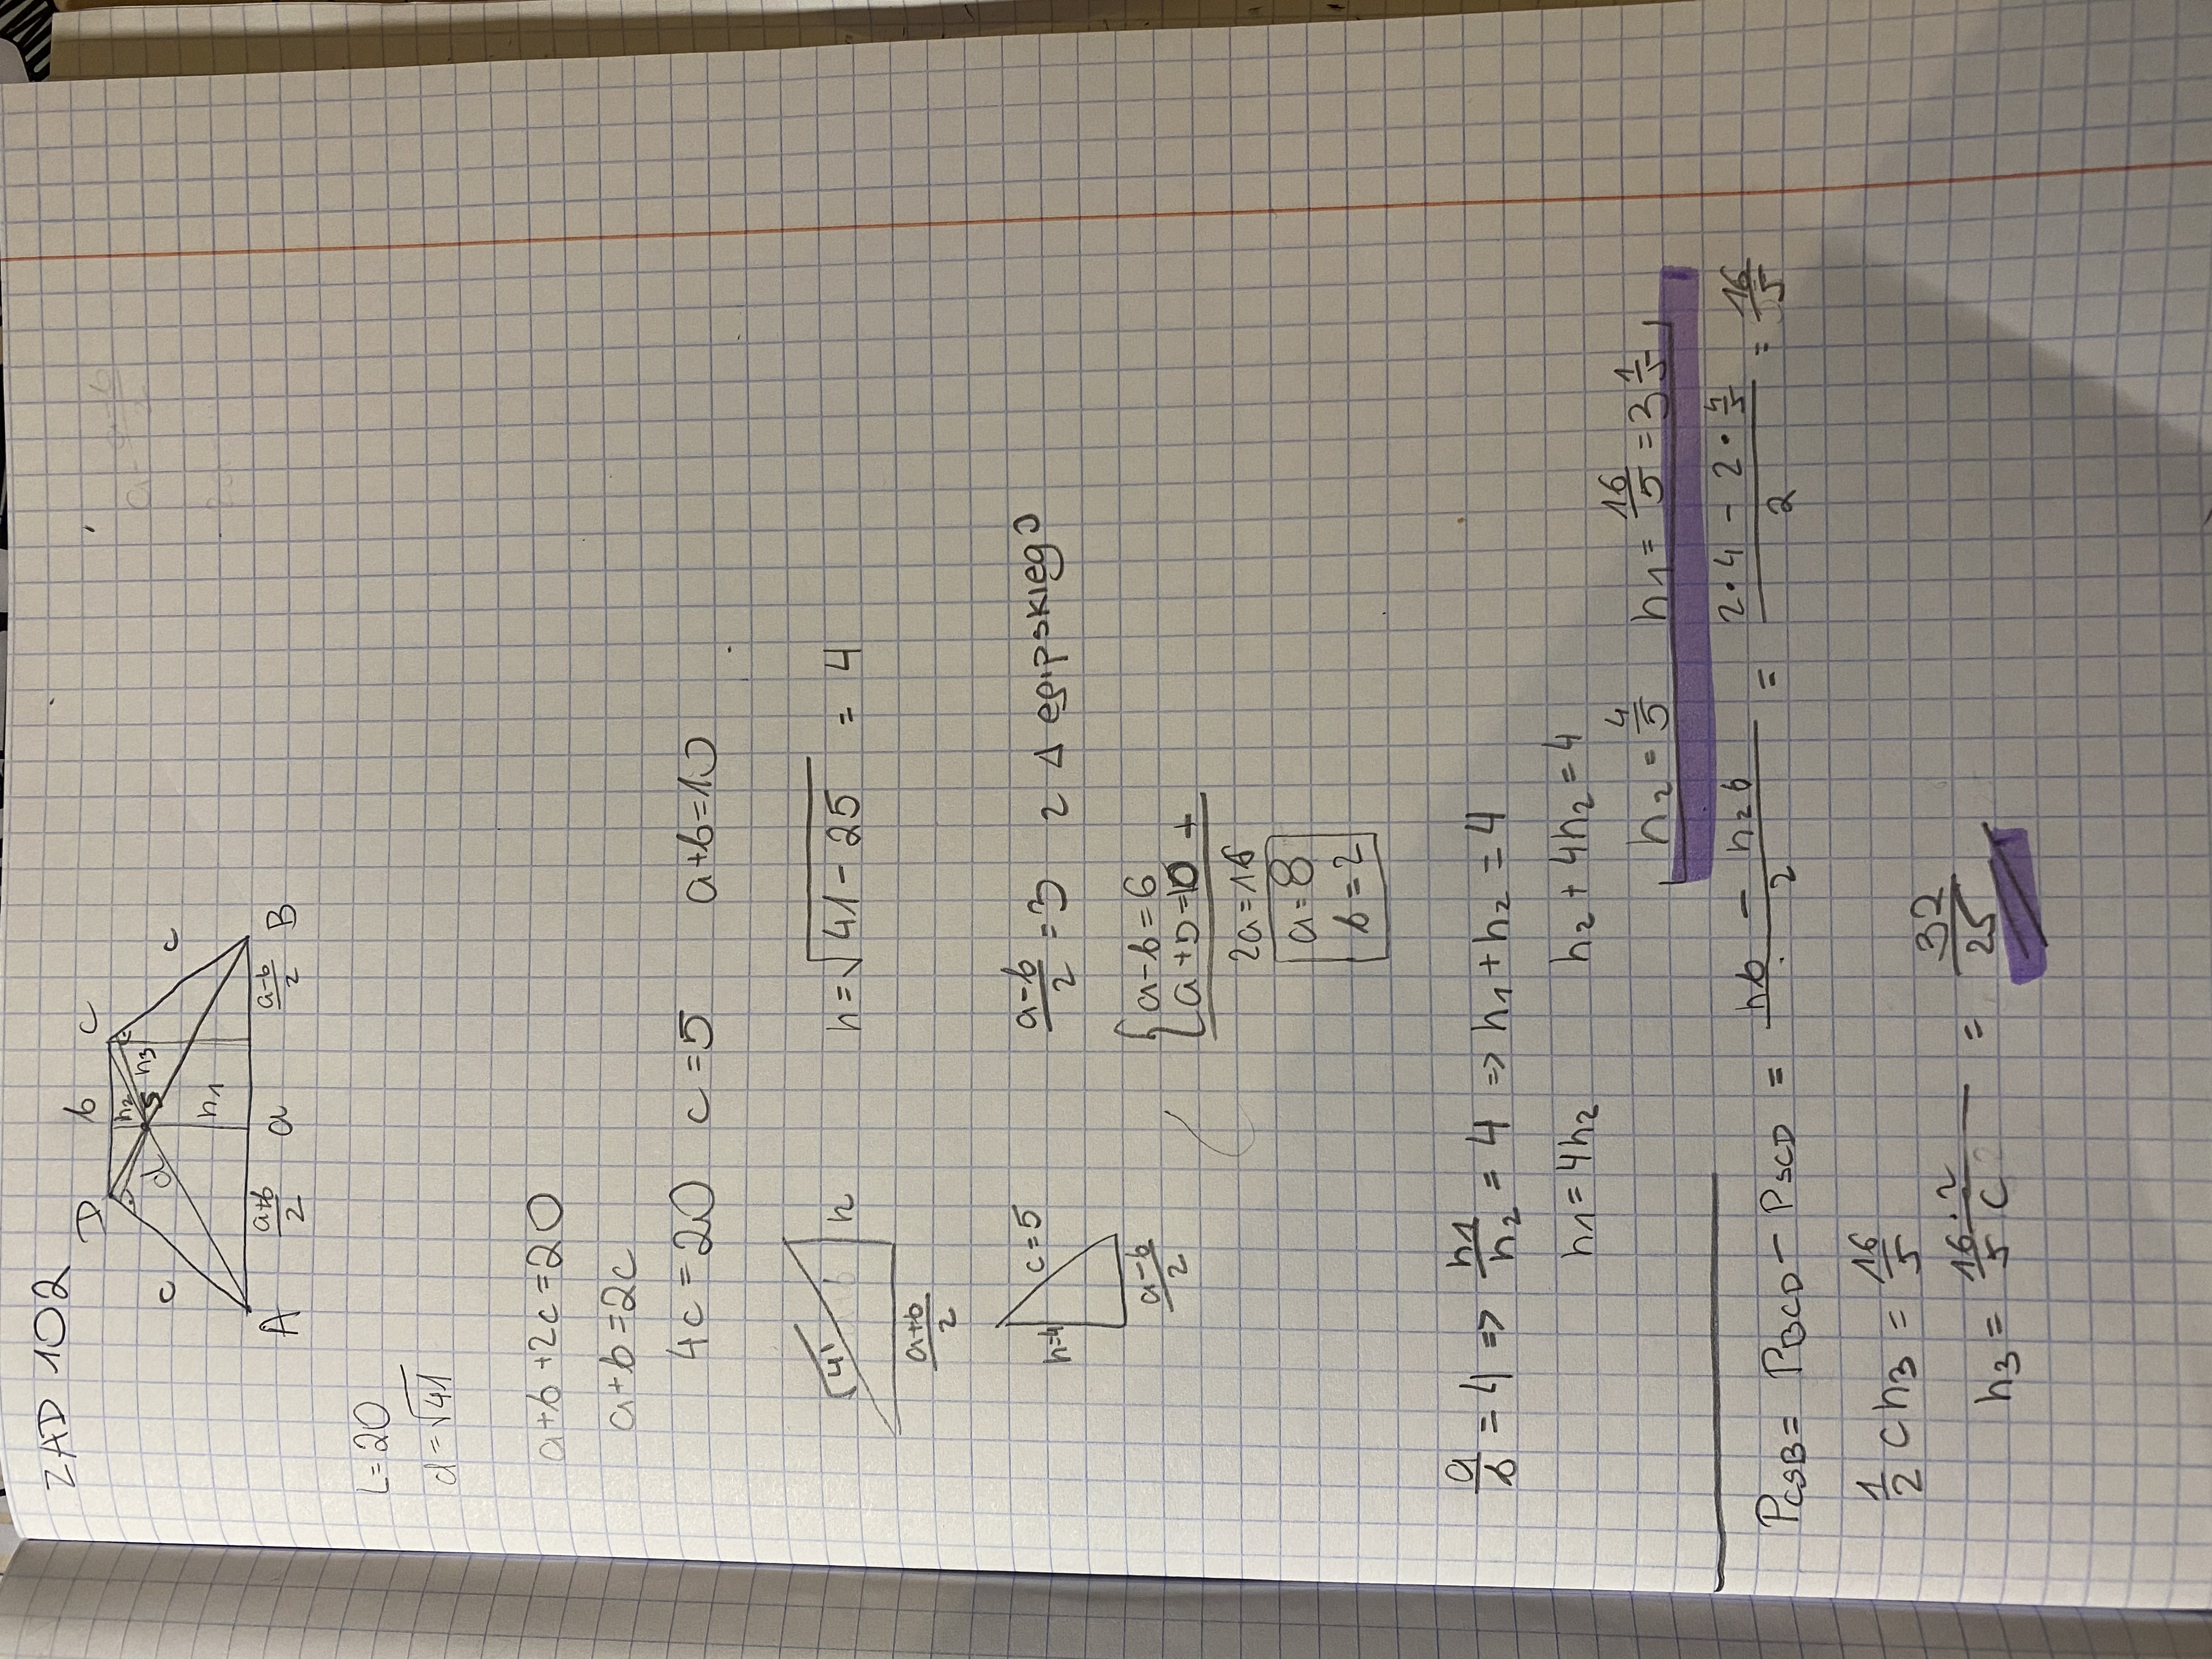 ZAD 102
D b C
c d h2 h3 S c
h1
A a+b/2 a a-b/2 B
L=20
d=√41
a+b+2c=20
a+b=2c
4c=20 c=5 a+b=10
√41 h h=√41-25 = 4
a+b/2
c=5 h=4 a-b/2 a-b/2=3 z Δ egipskiego
{a-b=6
a+b=10 +
2a=16
a=8
b=2
a/b=4 => h1/h2=4 => h1+h2=4
h1=4h2 h2+4h2=4
h2=4/5 h1=16/5=3 1/5
PCSB= PBCD- PSCD = hb/2 - h2b/2 = 2·4-2·4/5/2 = 16/5
1/2 ch3=16/5
h3= 16/5·2/c = 32/25